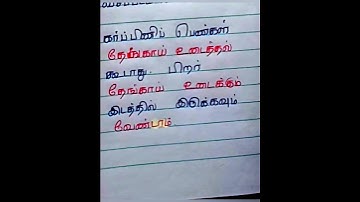 கர்ப்பிணிப் பெண்கள்
தேங்காய் உடைத்தல்
கூடாது. பிறர்
தேங்காய் உடைக்கும்
இடத்தில் இருக்கவும்
வேண்டாம்